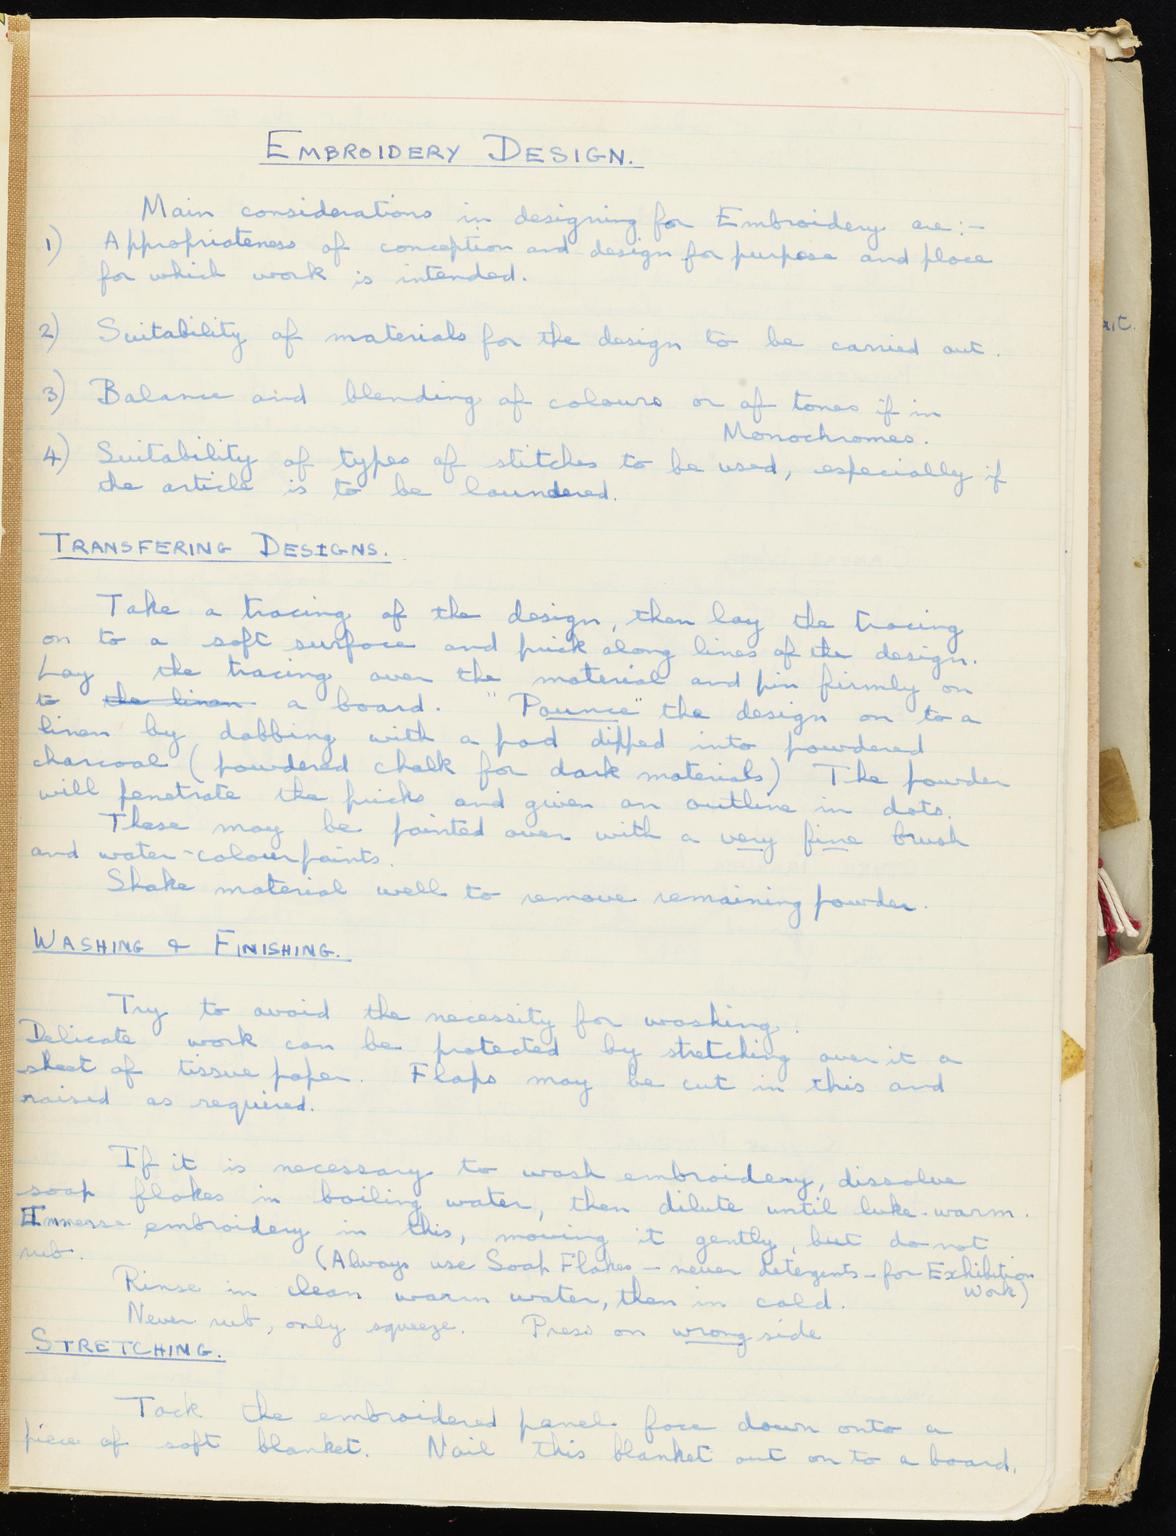 EMBROIDERY DESIGN.
Main considerations in designing for Embroidery are:-
1) Appropriateness of conception and design for purpose and place
for which work is intended.
2) Suitability of materials for the design to be carried out.
3) Balance and blending of colours or of tones if in
Monochromes.
4) Suitability of types of stitches to be used, especially if
the article is to be laundered.
TRANSFERING DESIGNS.
Take a tracing of the design, then lay the tracing
on to a soft surface and prick along lines of the design.
Lay the tracing over the material and pin firmly on
to the linen a board. "Pounce" the design on to a
linen by dabbing with a pad dipped into powdered
charcoal (powdered chalk for dark materials) The powder
will penetrate the pricks and given an outline in dots.
These may be painted over with a very fine brush
and water-colour paints.
Shake material well to remove remaining powder.
WASHING & FINISHING.
Try to avoid the necessity for washing.
Delicate work can be protected by stretching over it a
sheet of tissue paper. Flaps may be cut in this and
raised as required.
If it is necessary to wash embroidery, dissolve
soap flakes in boiling water, then dilute until luke-warm.
Immerse embroidery in this, moving it gently, but do not
rub. (Always use Soap Flakes - never detergents - for Exhibition
Work)
Rinse in clean warm water, then in cold.
Never rub, only squeeze. Press on wrong side
STRETCHING.
Tack the embroidered panel face down onto a
piece of soft blanket. Nail this blanket out on to a board.